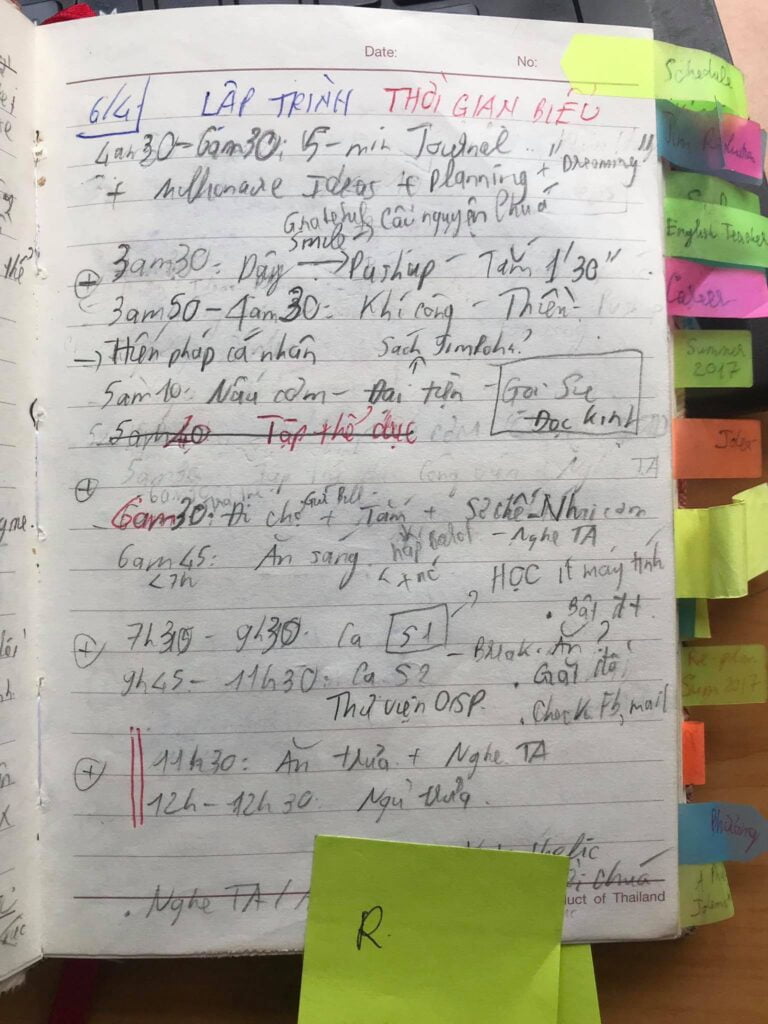 Date:
No:
6/4 LẬP TRÌNH THỜI GIAN BIỂU
4am30-6am30: 15-min Journal.. "Dreaming"
+ Millionaire Ideas + Planning +
Grateful Cầu nguyện Chúa
Smile
3am30: Dậy → Pushup - Tắm 1'30"
3am50-4am30: Khí công - Thiền
→ Hiến pháp cá nhân Sách JimRohn?
5am10: Nấu cơm - Đại tiện - Gọi Sue
Đọc Kinh
5am40 Tập thể dục
TA
6am30: Đi chợ + Tắm + Sơ chế - Nhai cơm
6am45: Ăn sáng - Nghe TA
<7h
HỌC ít máy tính
7h30 - 9h30 Ca S1
. Bật đt
- Break. Ăn ?
9h45 - 11h30: Ca S2
Thư viện OISP
. Check Fb, mail
11h30: Ăn trưa + Nghe TA
12h - 12h30: Ngủ trưa
. Nghe TA /
chúa
duct of Thailand
R.
Schedule
English Teacher
Career
Summer
2017
Idea
Re plan
Sum 2017